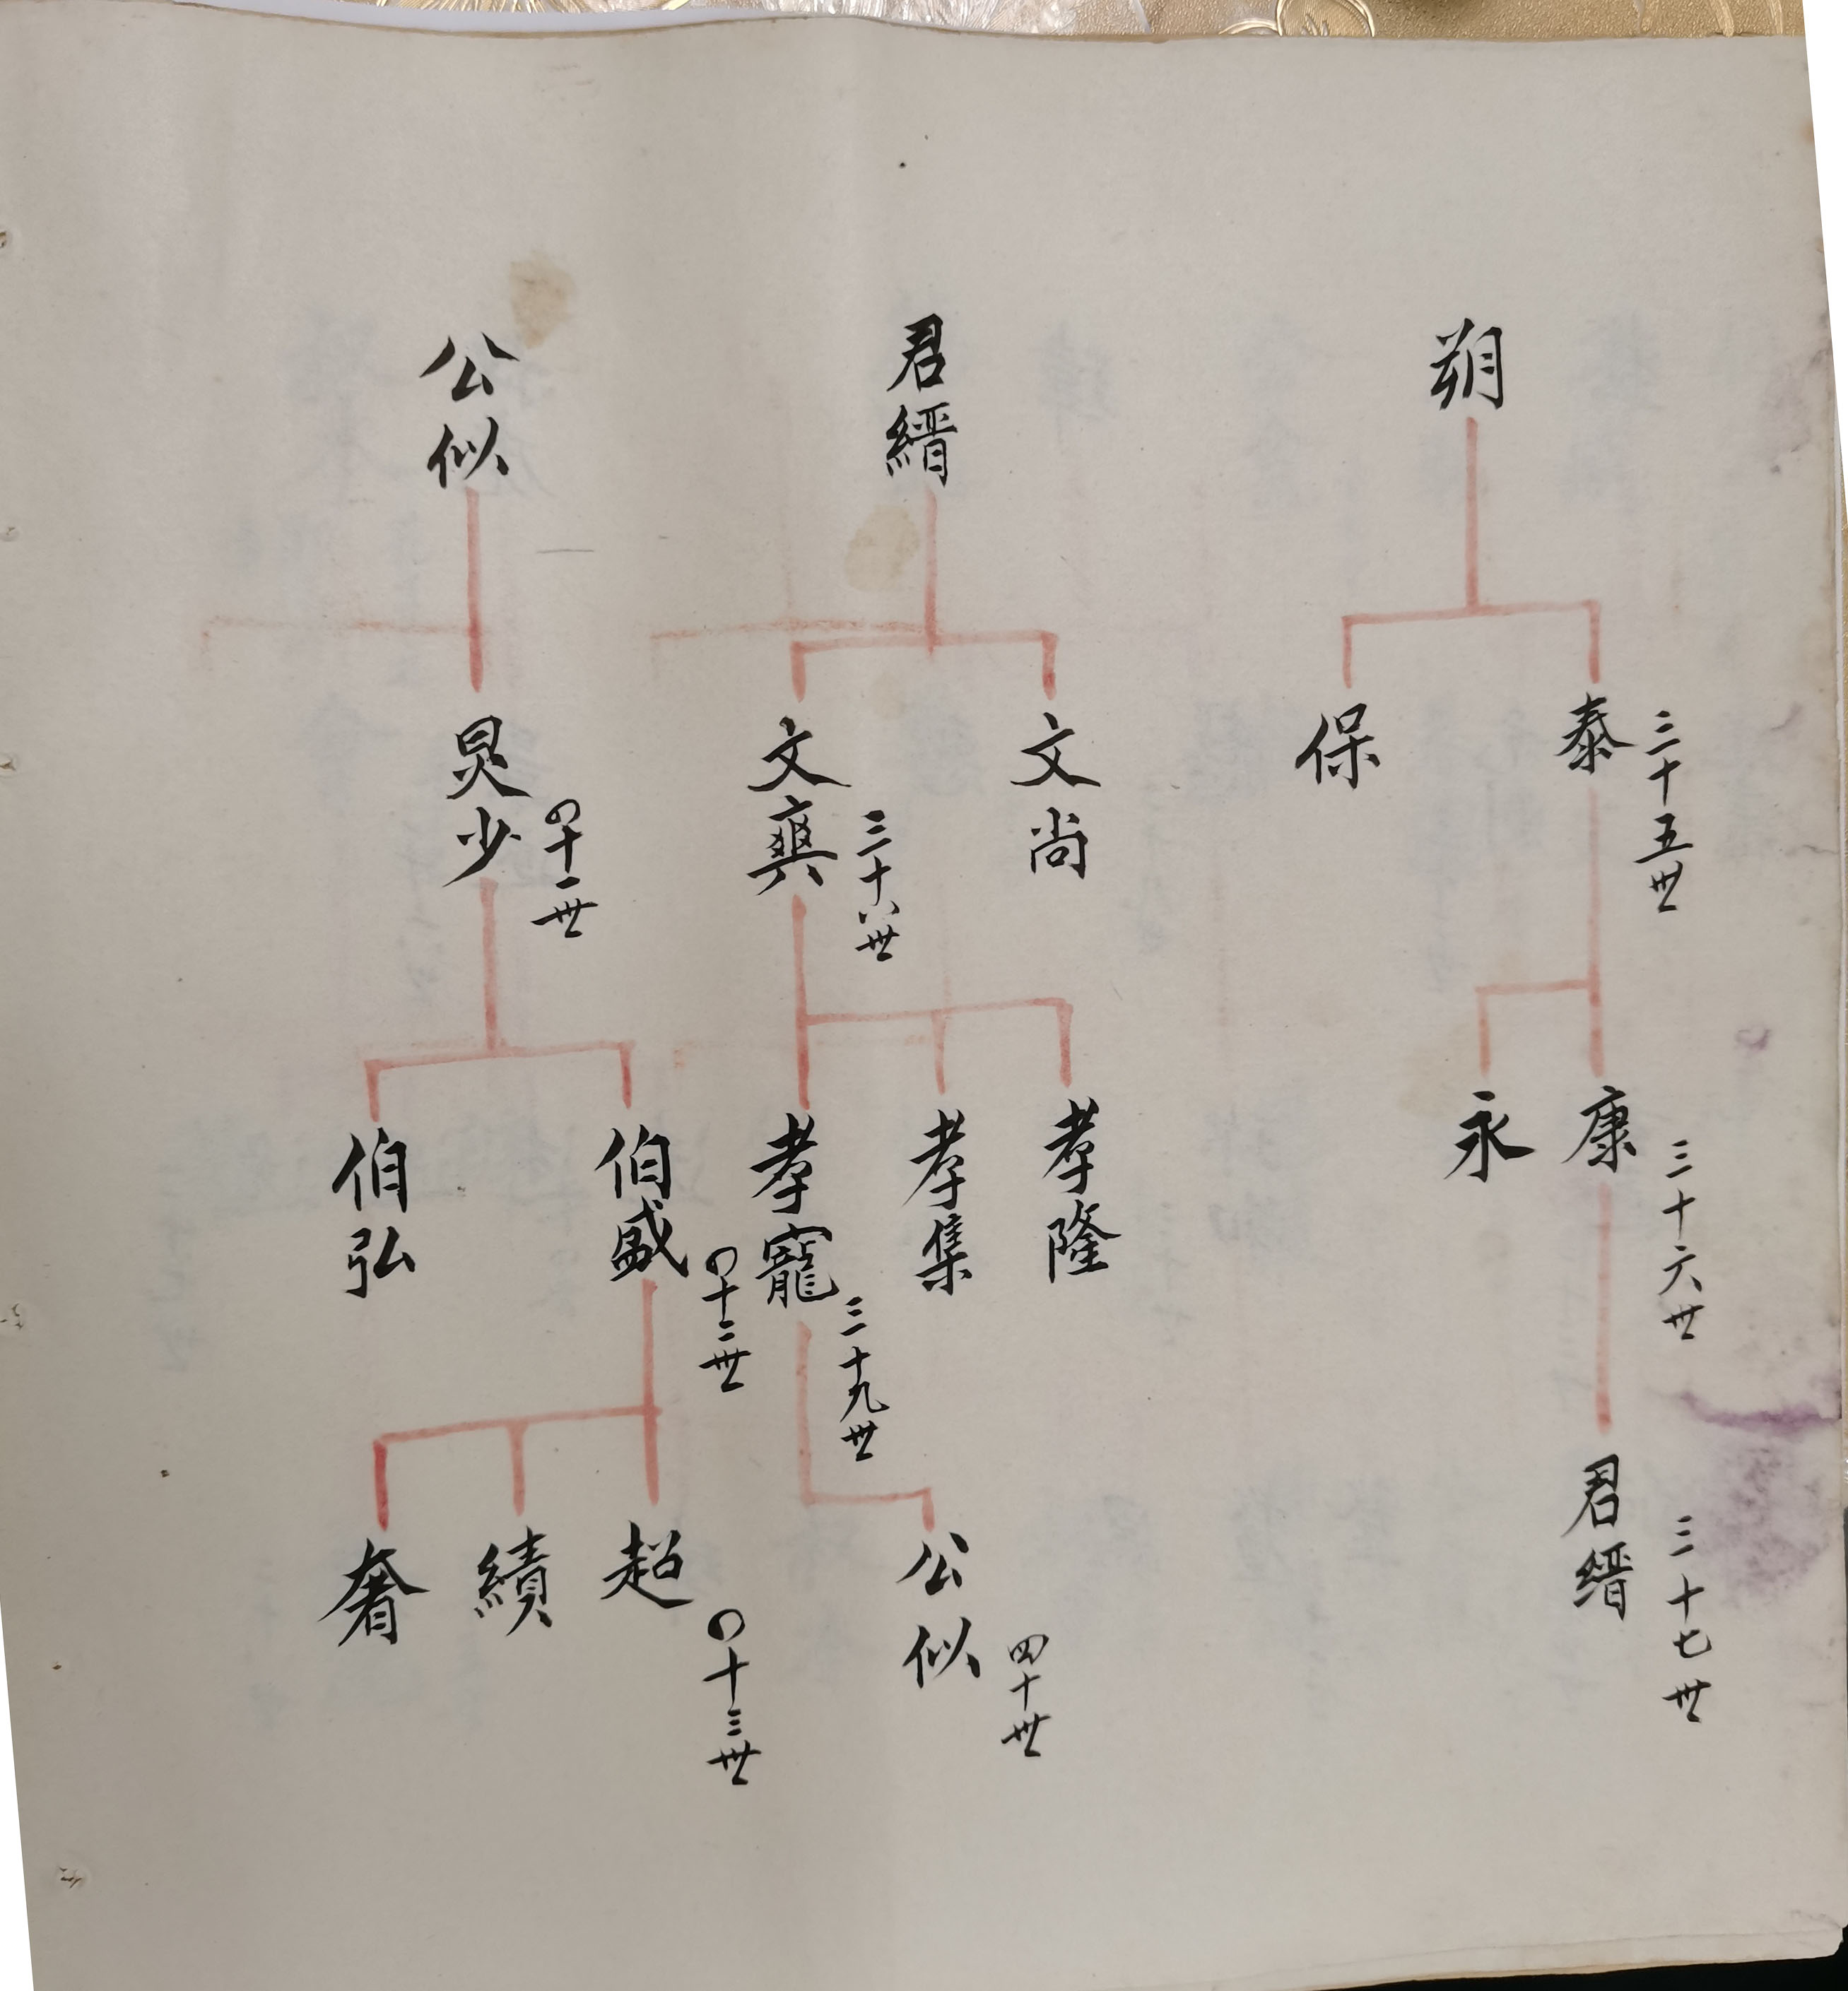 朔
泰
三十五世
保
康
三十六世
永
君縉
三十七世
君縉
文尚
文奭
三十八世
孝隆
孝集
孝寵
三十九世
公似
四十世
公似
炅少
四十一世
伯盛
四十二世
伯弘
超
四十三世
績
奢